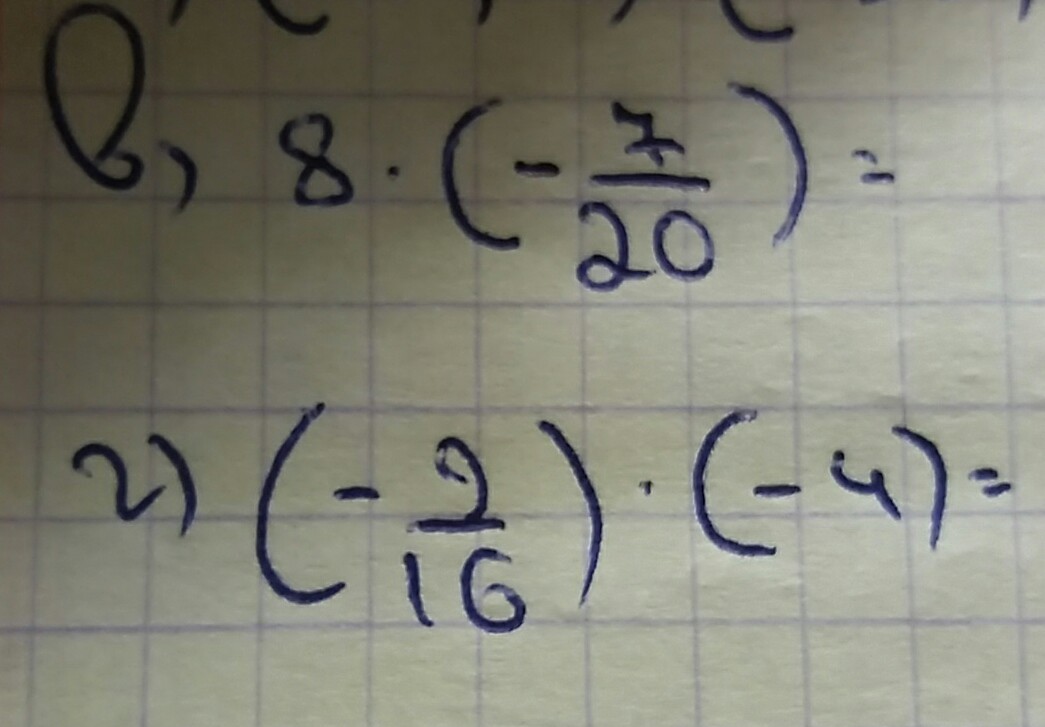 в) 8 · (-7/20) =
г) (-9/16) · (-4) =